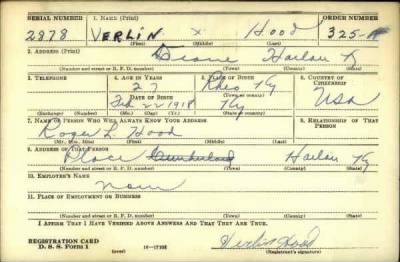 SERIAL NUMBER 1. NAME (Print) ORDER NUMBER
2878 VERLIN X Hood 325-A
(First) (Middle) (Last)
2. ADDRESS (Print)
Harlan Ky
(Number and street or R. F. D. number) (Town) (County) (State)
3. TELEPHONE 4. AGE IN YEARS 5. PLACE OF BIRTH 6. COUNTRY OF CITIZENSHIP
22 Ky
DATE OF BIRTH (Town or county)
Feb 22 1918 Ky USA
(Exchange) (Number) (Mo.) (Day) (Yr.) (State or country)
7. NAME OF PERSON WHO WILL ALWAYS KNOW YOUR ADDRESS 8. RELATIONSHIP OF THAT PERSON
Roger L. Hood
(Mr., Mrs., Miss) (First) (Middle) (Last)
9. ADDRESS OF THAT PERSON
Place Cumberland Harlan Ky
(Number and street or R. F. D. number) (Town) (County) (State)
10. EMPLOYER'S NAME
None
11. PLACE OF EMPLOYMENT OR BUSINESS
(Number and street or R. F. D. number) (Town) (County) (State)
I AFFIRM THAT I HAVE VERIFIED ABOVE ANSWERS AND THAT THEY ARE TRUE.
REGISTRATION CARD
D. S. S. Form 1 (over) 16-17105 Verlin Hood
(Registrant's signature)